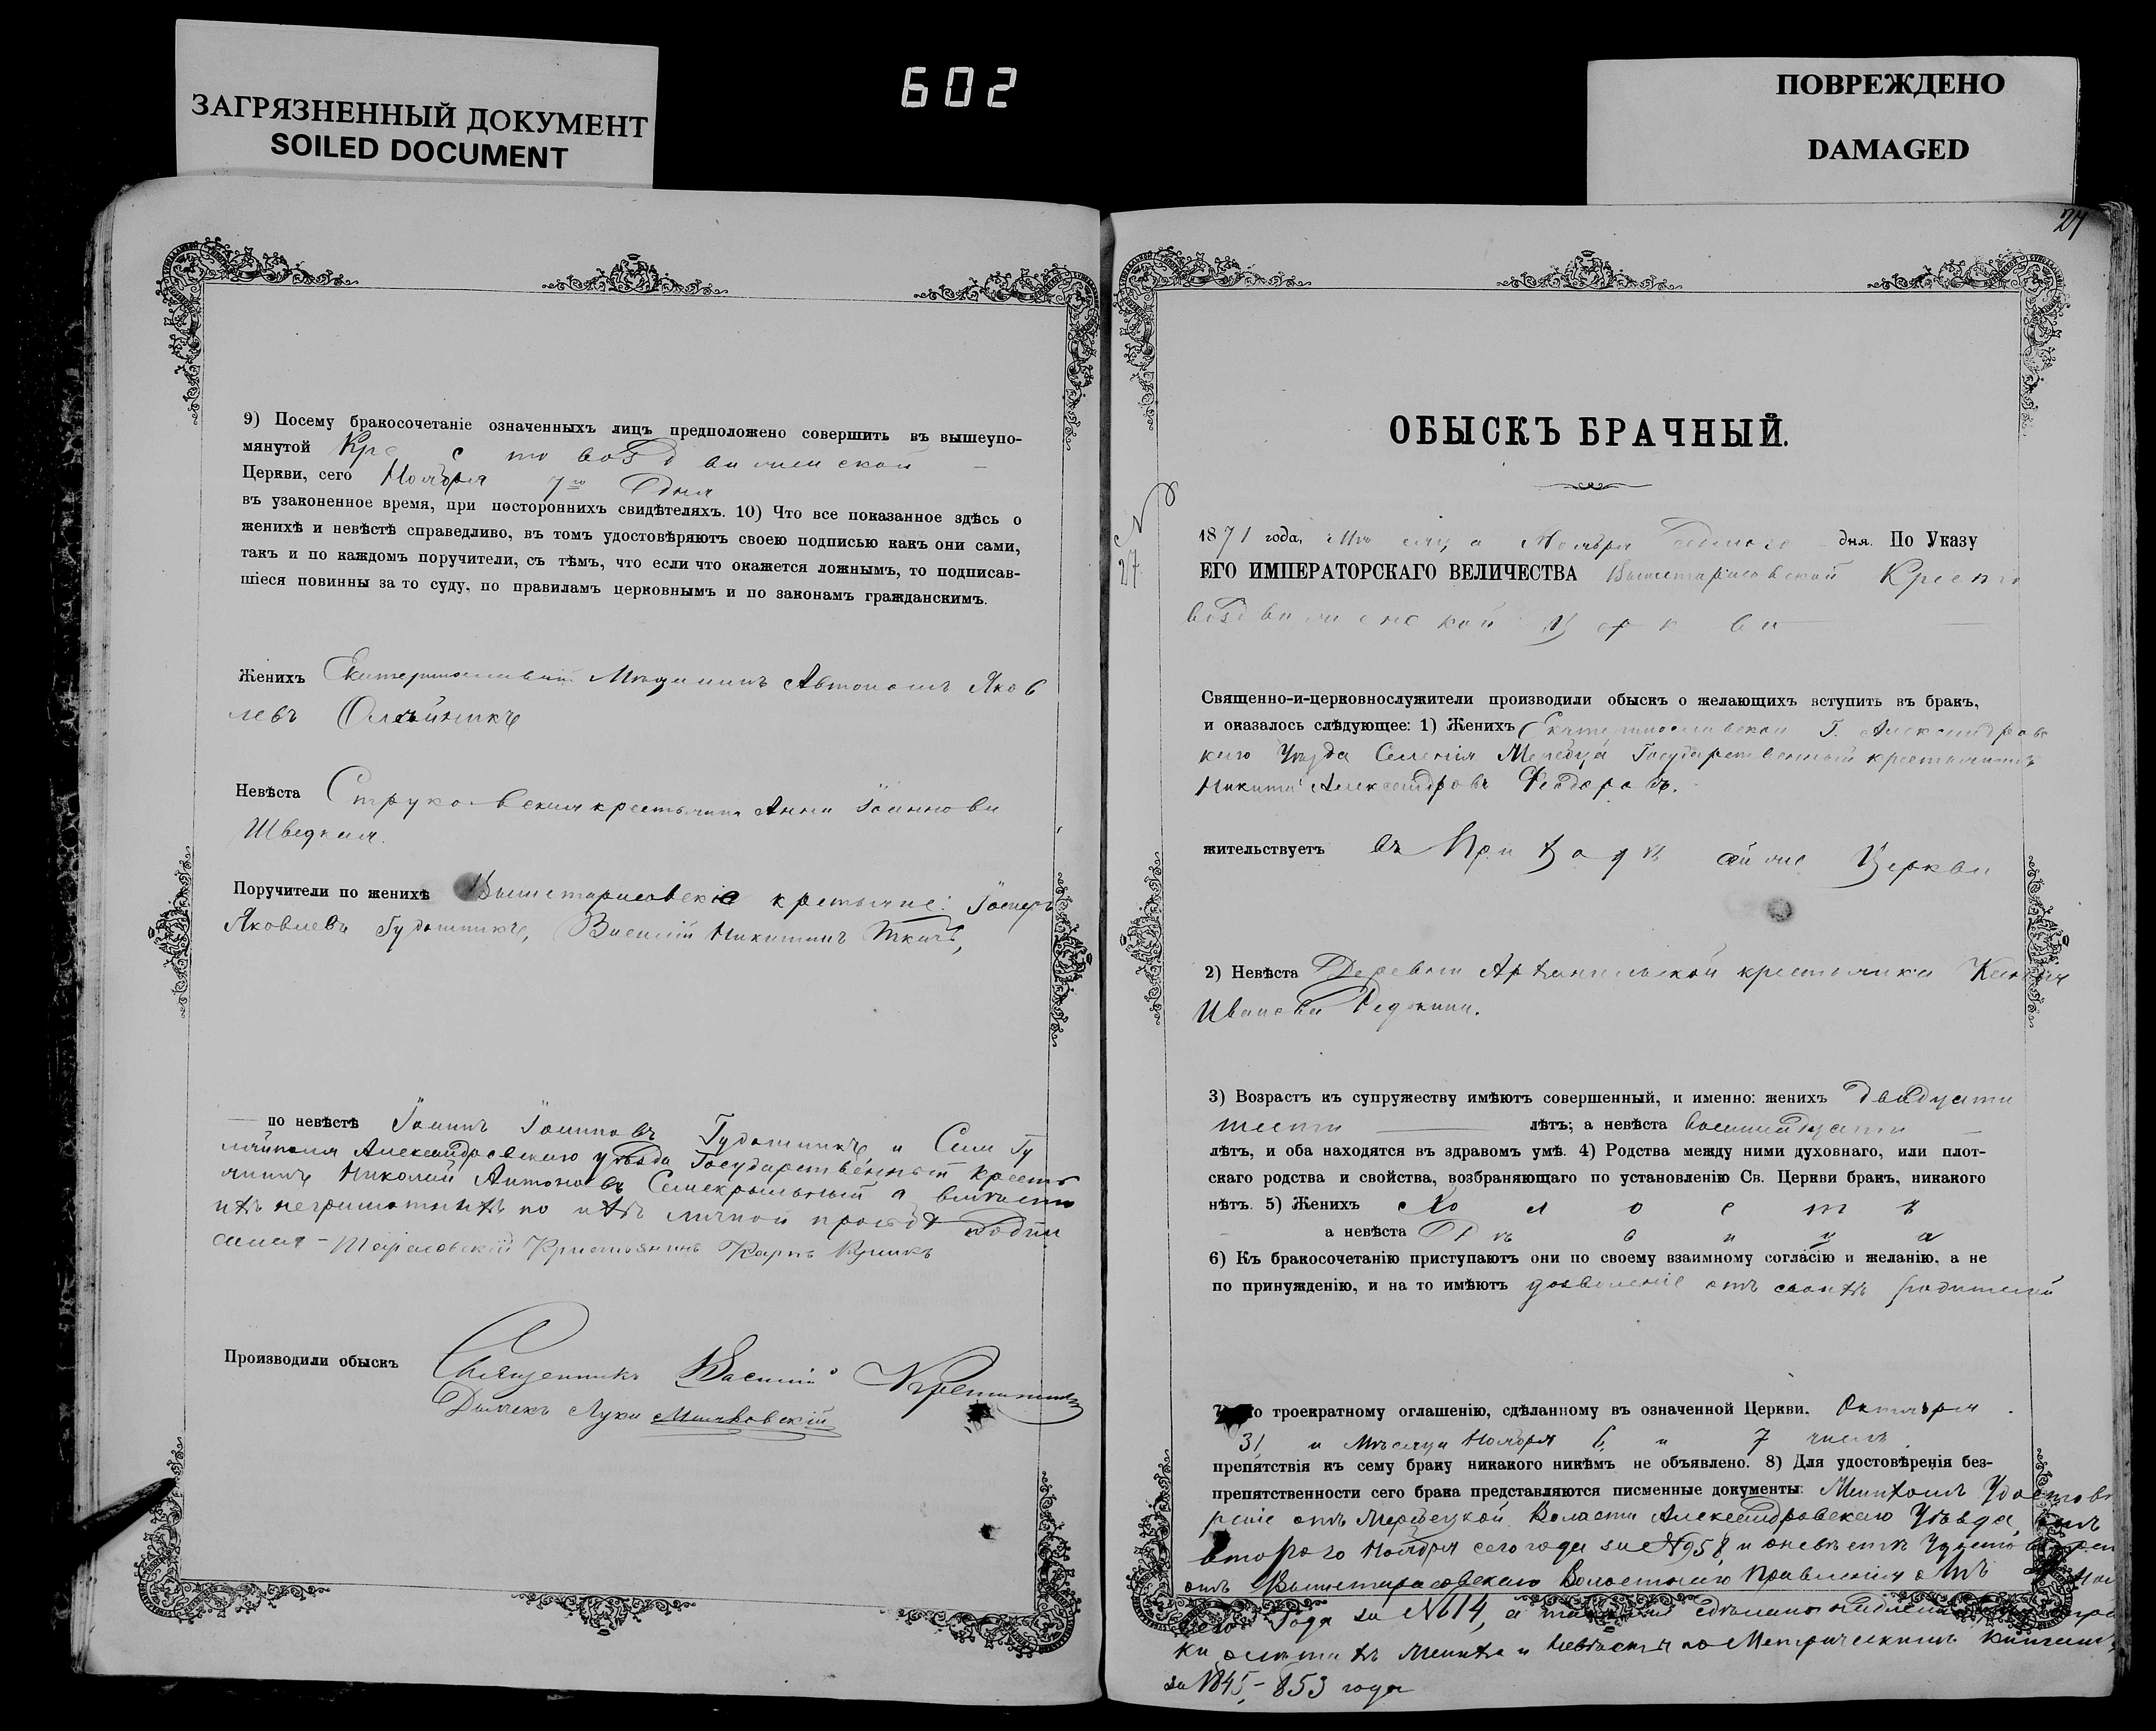 ЗАГРЯЗНЕННЫЙ ДОКУМЕНТ
SOILED DOCUMENT
602
ПОВРЕЖДЕНО
DAMAGED
9) Посему бракосочетаніе означенныхъ лицъ предположено совершить въ вышеупо-
мянутой Кре с то возд вижен ской
Церкви, сего Ноября 7го Дня
въ узаконенное время, при постороннихъ свидѣтеляхъ. 10) Что все показанное здѣсь о
женихѣ и невѣстѣ справедливо, въ томъ удостовѣряютъ своею подписью какъ они сами,
такъ и по каждомъ поручители, съ тѣмъ, что если что окажется ложнымъ, то подписав-
шіеся повинны за то суду, по правиламъ церковнымъ и по законамъ гражданскимъ.
Женихъ Мѣщанинъ Автономъ Яков
левъ Олѣйникъ
Невѣста Струковская крестьянка Анна Іоаннова
Шведкая.
Поручители по женихѣ Вышетарасовскіе крестьяне: Іосифъ
Яковлевъ Гудошникъ, Василій Никитинъ Ткачъ,
— по невѣстѣ Іоаннъ Іоанновъ Гудошникъ и Села Гу
ляйполя Александровскаго уѣзда Государственный кресть
янинъ Николай Антоновъ а вмѣсто
ихъ неграмотныхъ по ихъ личной прозьбѣ подпи
сался - Тарасовскій Крестьянинъ Карпъ
Производили обыскъ Священникъ Василій
Дьячекъ Лука
24
ОБЫСКЪ БРАЧНЫЙ.
N
27.
1871 года, Мѣ сяц а Ноября Седмаго дня. По Указу
ЕГО ИМПЕРАТОРСКАГО ВЕЛИЧЕСТВА Вышетарасовской Кресто
воздвиженс кой Ц ер к ви
Священно-и-церковнослужители производили обыскъ о желающихъ вступить въ бракъ,
и оказалось слѣдующее: 1) Женихъ Екатеринославской Г. Александровс
каго Уѣзда Селенія Государственный крестьянинъ
Никита Александровъ Федоровъ.
жительствуетъ въ При х о д ѣ сей же Церкви
2) Невѣста Деревни Архангельской крестьянка
Иванова
3) Возрастъ къ супружеству имѣютъ совершенный, и именно: женихъ двадцати
шести лѣтъ; а невѣста восимнадцати
лѣтъ, и оба находятся въ здравомъ умѣ. 4) Родства между ними духовнаго, или плот-
скаго родства и свойства, возбраняющаго по установленію Св. Церкви бракъ, никакого
нѣтъ. 5) Женихъ Хо л о с т ъ
а невѣста Д ѣ в и ц а
6) Къ бракосочетанію приступаютъ они по своему взаимному согласію и желанію, а не
по принужденію, и на то имѣютъ дозволеніе отъ своихъ родителей
7) По троекратному оглашенію, сдѣланному въ означенной Церкви. Октября
31 и Мѣсяца Ноября 6 и 7 числъ
препятствія къ сему браку никакого никѣмъ не объявлено. 8) Для удостовѣренія без-
препятственности сего брака представляются писменные документы: Женихомъ Удостовѣ
реніе отъ Волости Александровскаго Уѣзда, отъ
втораго Ноября сего года за №958, и о невѣстѣ
отъ Вышетарасовскаго Волостнаго Правленія отъ
сего Года за №614, а
ки о лѣтахъ жениха и невѣсты по Метрическимъ книгамъ
за 1845 - 853 года